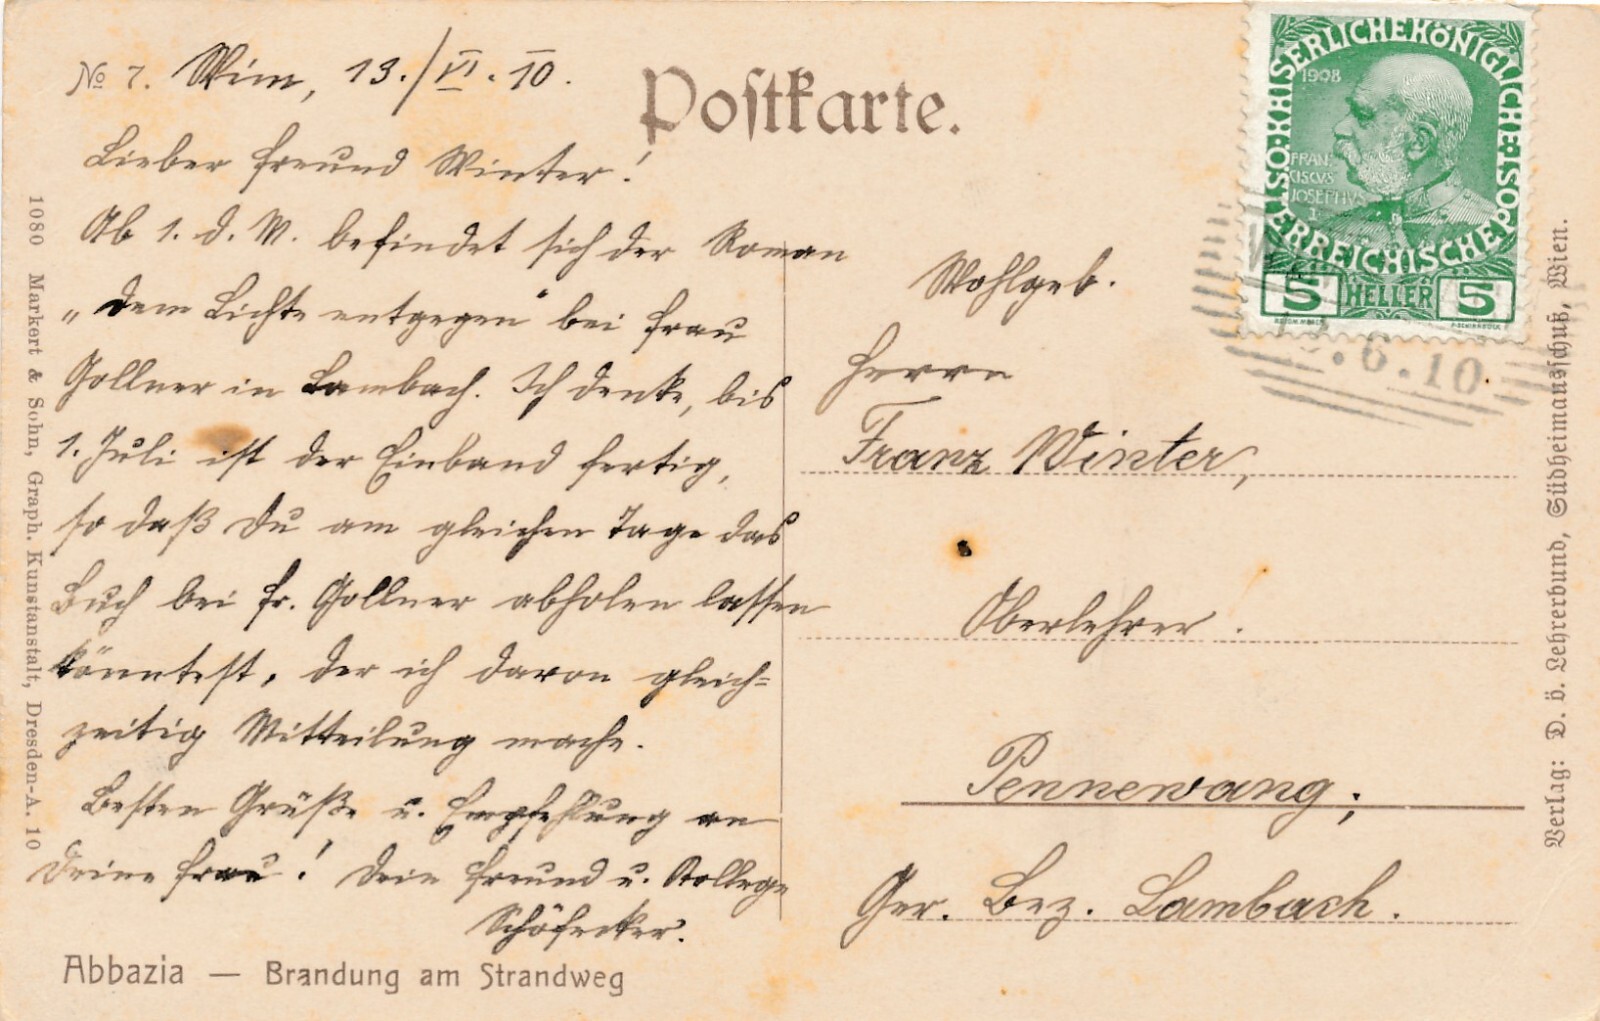 No 7. Wien, 13./VI. 10.
Lieber Freund Winter!
Ab 1. d. M. befindet sich der Roman
„Dem Lichte entgegen" bei Frau
Gollner in Lambach. Ich denke, bis
1. Juli ist der Einband fertig,
so daß Du am gleichen Tage das
Buch bei Fr. Gollner abholen lassen
könntest, der ich davon gleich=
zeitig Mitteilung mache.
Besten Grüße u. Empfehlung an
Deine Frau! Dein Freund u. Kollege
Schöfecker.
Abbazia — Brandung am Strandweg
1080 Markert & Sohn, Graph. Kunstanstalt, Dresden-A. 10
Postkarte.
Wohlgeb.
Herrn
Franz Winter,
Oberlehrer.
Pennewang;
Ger. Bez. Lambach.
KAISERLICHE KÖNIGLICHE ÖSTERREICHISCHE POST
1908
FRAN
CISCVS
JOSEPHVS
I.
5 HELLER 5
.6.10
Verlag: D. ö. Lehrerbund, Südheimausschuß, Wien.